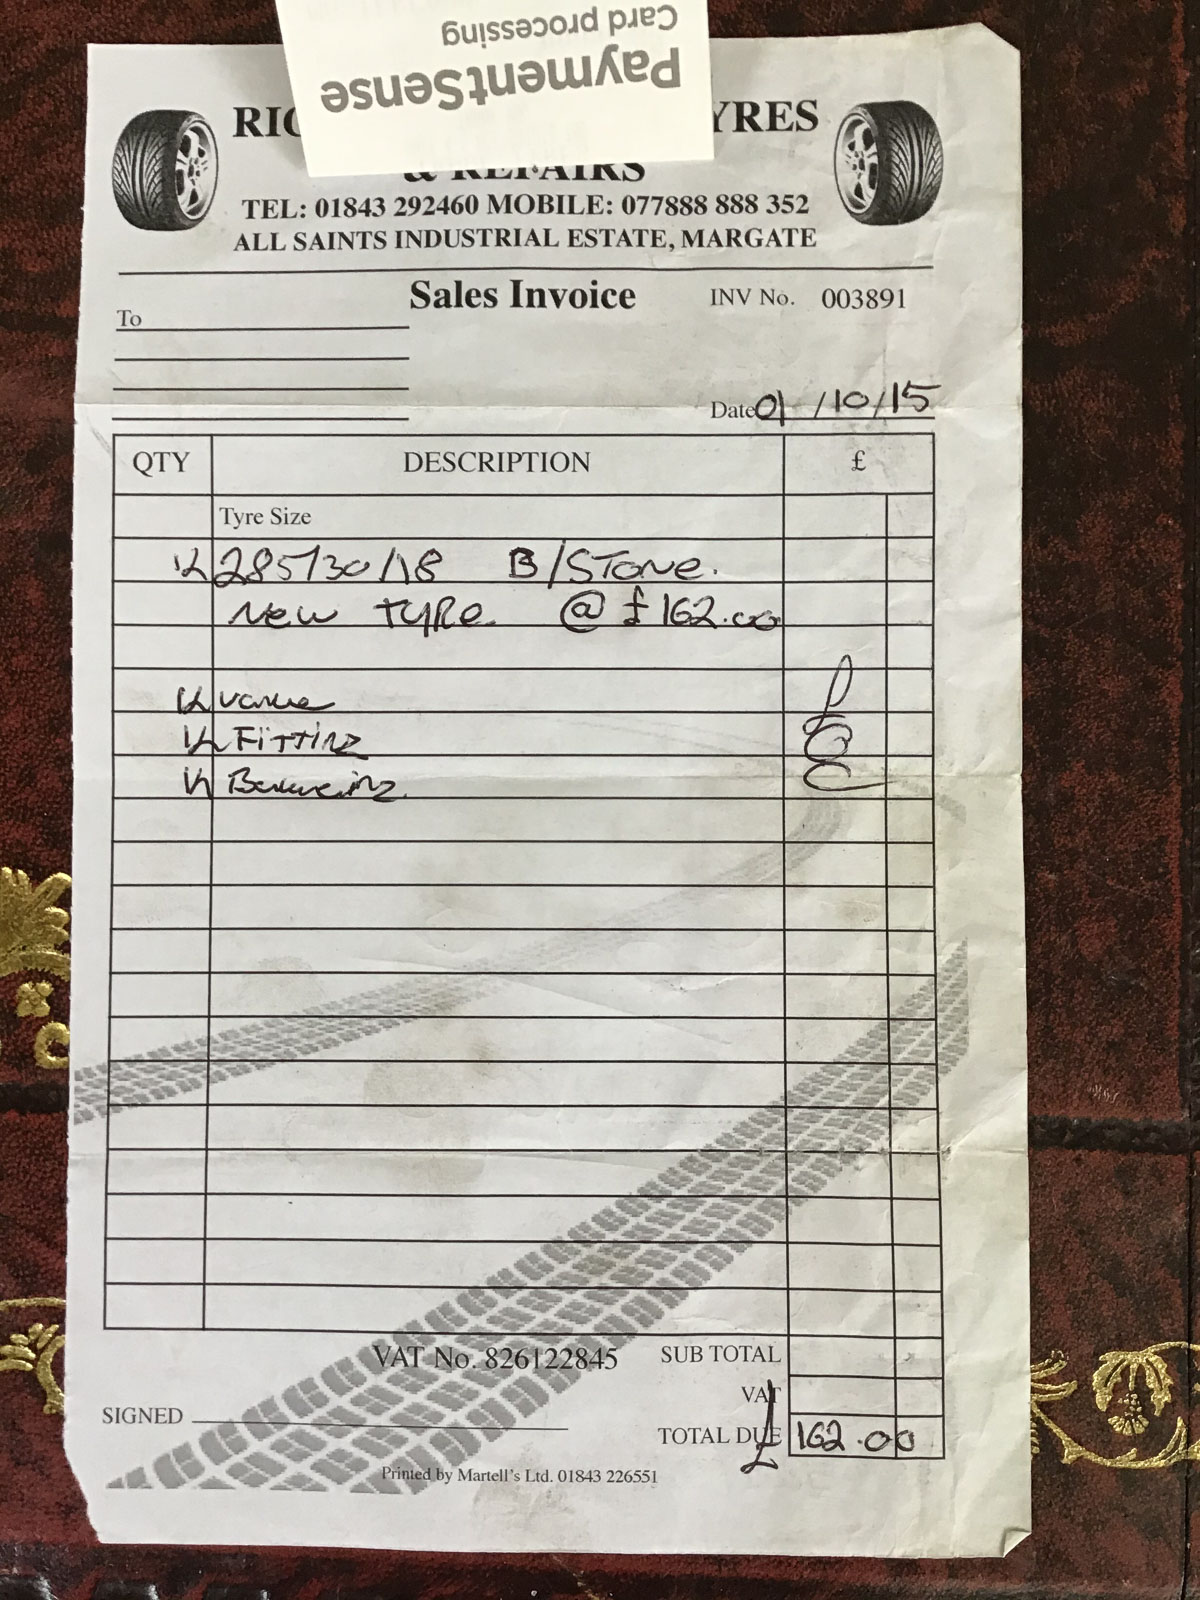 PaymentSense
Card processing
RIC YRES
& REPAIRS
TEL: 01843 292460 MOBILE: 077888 888 352
ALL SAINTS INDUSTRIAL ESTATE, MARGATE
Sales Invoice INV No. 003891
To
Date 01/10/15
QTY DESCRIPTION £
Tyre Size
285/30/18 B/STONE.
NEW TYRE @ £162.00
Valve
FITTING
Balancing
VAT No. 826122845 SUB TOTAL
VAT
SIGNED TOTAL DUE £162.00
Printed by Martell's Ltd. 01843 226551